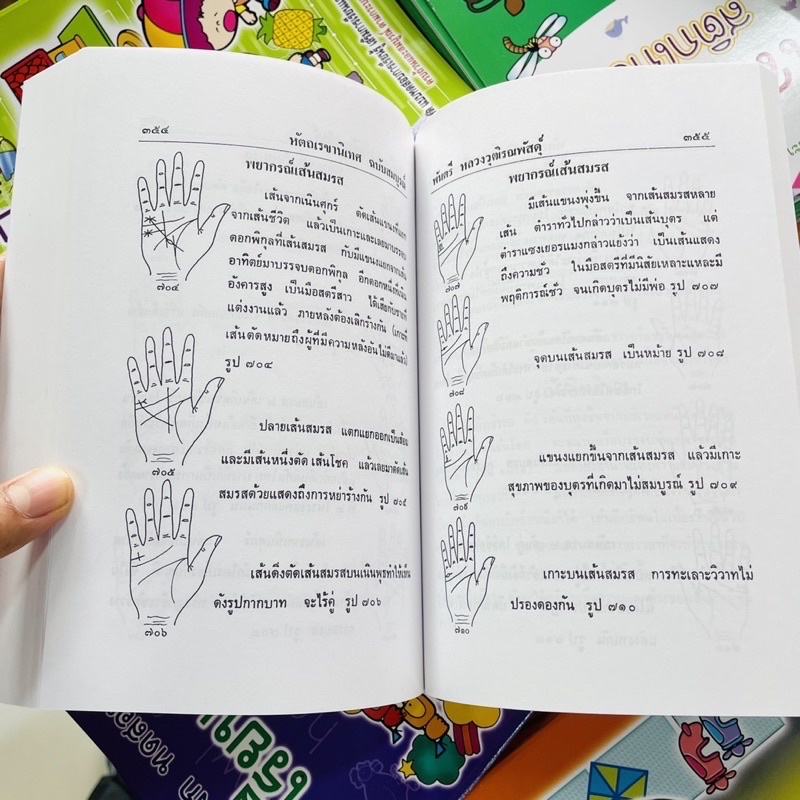 ๓๕๔
หัตถเรขานิเทศ ฉบับสมบูรณ์
พยากรณ์เส้นสมรส
เส้นจากเนินศุกร์ ตัดเส้นแขนงที่แยก
จากเส้นชีวิต แล้วเป็นเกาะและเลยมาบรรจบ
ดอกพิกุลที่เส้นสมรส กับมีแขนงแยกจากเส้น
อาทิตย์มาบรรจบดอกพิกุล อีกดอกหนึ่งที่เนิน
อังคารสูง เป็นมือสตรีสาว ได้เสียกับชายที่
แต่งงานแล้ว ภายหลังต้องเลิกร้างกัน (เกาะที่
เส้นตัดหมายถึงผู้ที่มีความหลังอันไม่ดีมาแล้ว)
รูป ๗๐๔
๗๐๔
ปลายเส้นสมรส แตกแยกออกเป็นส้อม
และมีเส้นหนึ่งตัดเส้นโชค แล้วเลยมาตัดเส้น
สมรสด้วยแสดงถึงการหย่าร้างกัน รูป ๗๐๕
๗๐๕
เส้นดิ่งตัดเส้นสมรสบนเนินพุธทำให้เห็น
ดังรูปกากบาท จะไร้คู่ รูป ๗๐๖
๗๐๖
พันตรี หลวงวุฒิรณพัสดุ์
๓๕๕
พยากรณ์เส้นสมรส
มีเส้นแขนงพุ่งขึ้น จากเส้นสมรสหลาย
เส้น ตำราทั่วไปกล่าวว่าเป็นเส้นบุตร แต่
ตำราแซงเยอรแมงกล่าวแย้งว่า เป็นเส้นแสดง
ถึงความชั่ว ในมือสตรีที่มีนิสัยเหลาะแหละมี
พฤติการณ์ชั่ว จนเกิดบุตรไม่มีพ่อ รูป ๗๐๗
๗๐๗
จุดบนเส้นสมรส เป็นหม้าย รูป ๗๐๘
๗๐๘
แขนงแยกขึ้นจากเส้นสมรส แล้วมีเกาะ
สุขภาพของบุตรที่เกิดมาไม่สมบูรณ์ รูป ๗๐๙
๗๐๙
เกาะบนเส้นสมรส การทะเลาะวิวาทไม่
ปรองดองกัน รูป ๗๑๐
๗๑๐